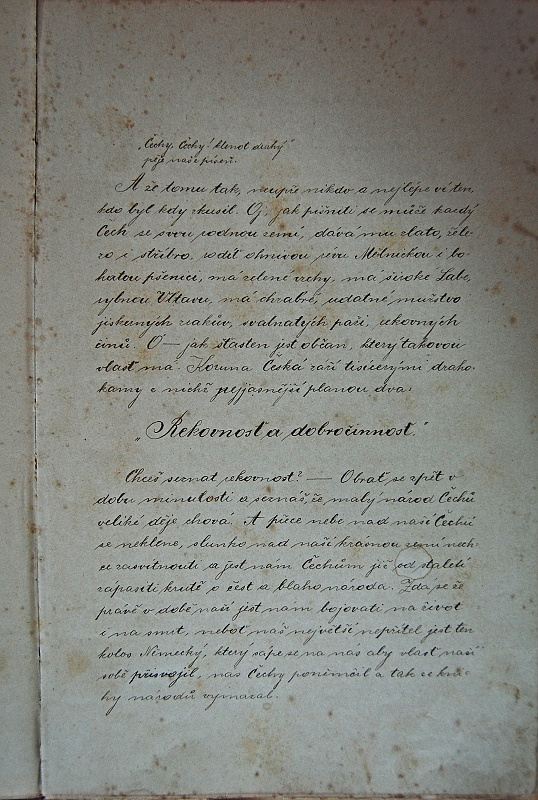 „Čechy, Čechy! klenot drahý"
pěje naše píseň.
A že tomu tak, neupře nikdo a nejlépe ví ten,
kdo byl kdy zkusil. Oj, jak pyšniti se může každý
Čech se svou rodnou zemí, dává mu zlato, žele-
zo i stříbro, rodit ohnivou révu Mělnickou i bo-
hatou pšenici, má zelené vrchy, má široké Labe,
rybnou Vltavu, má chrabré, udatné mužstvo
jiskrných zrakův, svalnatých paží, rekovných
činů. O — jak šťasten jest občan, který takovou
vlast má. Koruna Česká září tisícerými draho-
kamy z nichž nejjasnější planou dva:
„Rekovnost a dobročinnost."
Chceš seznat rekovnost? — Obrať se zpět v
dobu minulosti a seznáš, že malý národ Čechů
veliké děje chová. A přece nebe nad naší Čechií
se neklene, slunko nad naší krásnou zemí nech-
ce zasvitnouti a jest nám Čechům již od staletí
zápasiti krutě o čest a blaho národa. Zdá se že
právě v době naší jest nám bojovati na život
i na smrt, neboť náš největší nepřítel jest ten
kolos Německý, který sápe se na nás aby vlast naši
sobě přisvojil, nás Čechy poněmčil a tak z kni-
hy národů vymazal.